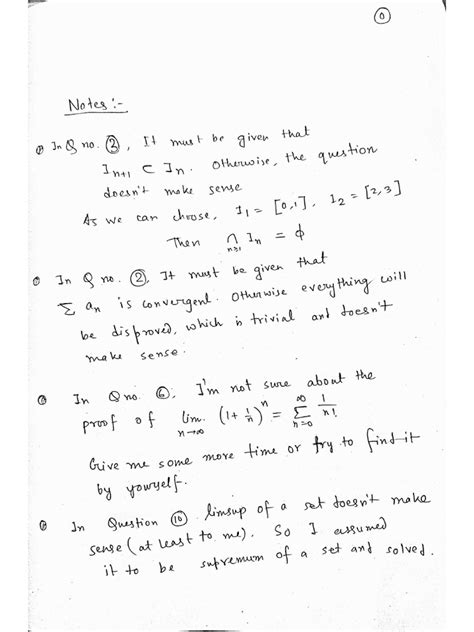 0
Notes :-
In Q no. 3, It must be given that
I_{n+1} ⊂ I_n. Otherwise, the question
doesn't make sense
As we can choose, I_1 = [0,1], I_2 = [2,3]
Then ⋂_{n≥1} I_n = ϕ
In Q no. 2, It must be given that
∑ a_n is convergent. Otherwise everything will
be disproved, which is trivial and doesn't
make sense.
In Q no. 6, I'm not sure about the
proof of lim_{n→∞} (1+ 1/n)^n = ∑_{n=0}^{∞} 1/n!
Give me some more time or try to find it
by yourself.
In Question 10 limsup of a set doesn't make
sense (at least to me). So I assumed
it to be supremum of a set and solved.